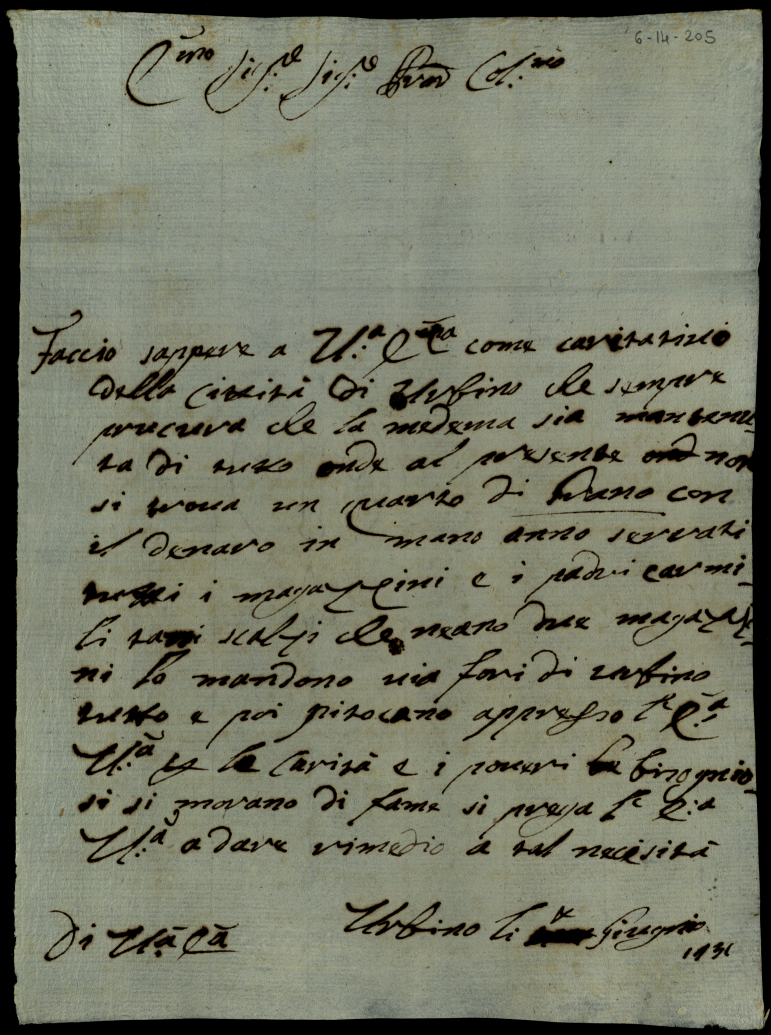 6-14-205
E.mo Sig.re Sig.re Pron Col.mo
Faccio sappere a V.a E.za come caritativo
della Cittità di Urbino che sempre
prucura che la medema sia mantenu-
ta di tutto onde al presente non
si trova un quarto di Grano con
il denaro in mano anno serrati
tutti i magazzini e i padri carmi-
li tani scalzi che neano due magazzi-
ni lo mandono via fori di urbino
tutto e poi pitocano appresso l' E.a
V.a la Carità e i poveri bisognio-
si si morano di fame si prega l' E.a
V.a a dare rimedio a tal necesità
Di V.a E.a
Urbino li Giugnio